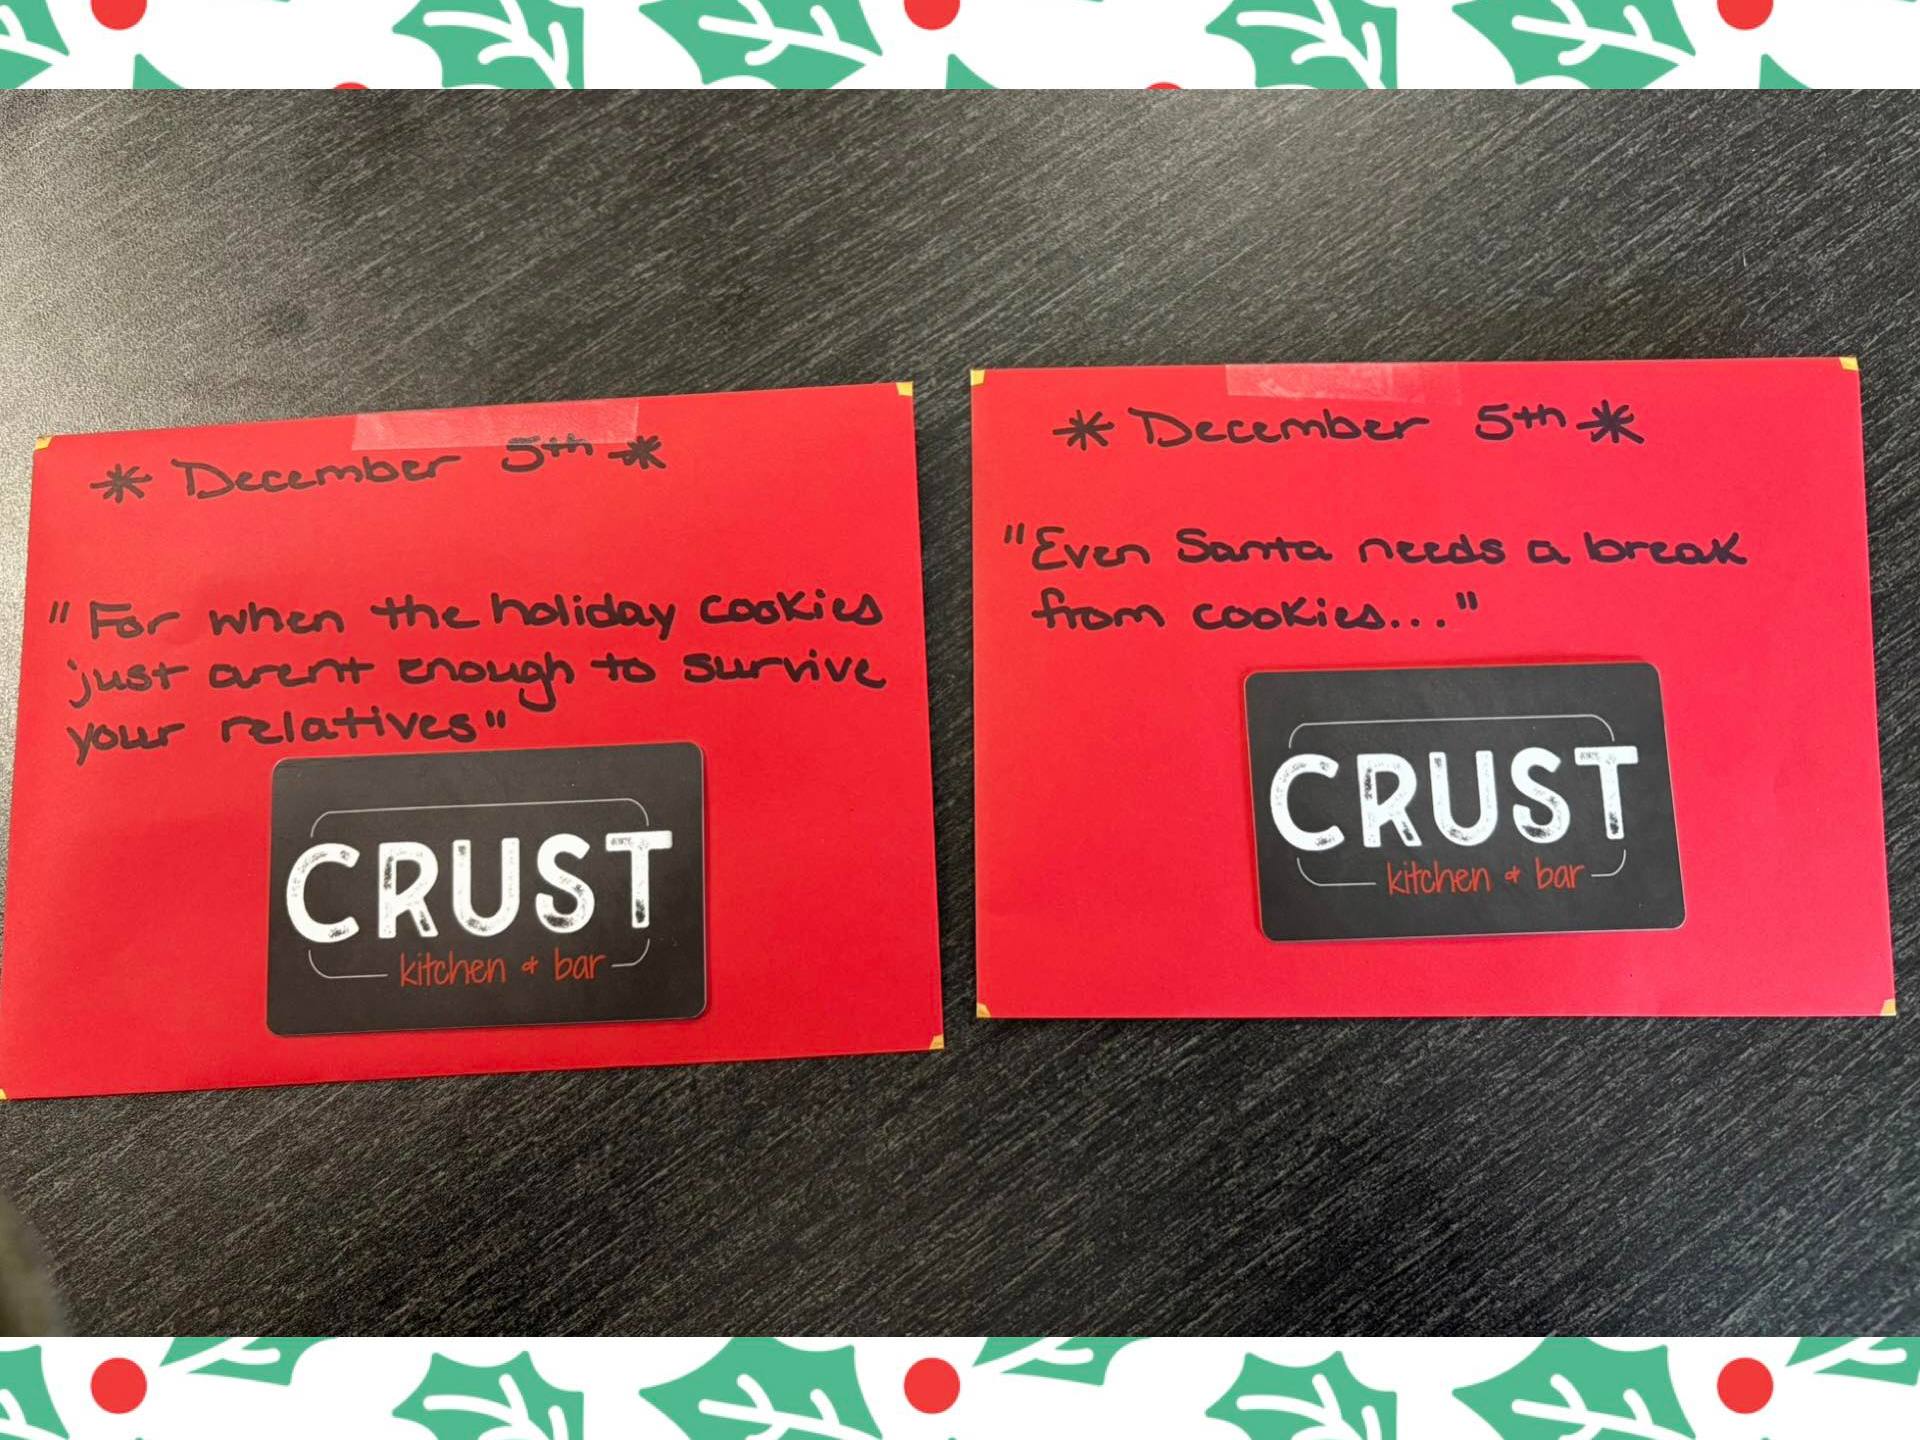 * December 5th *
"For when the holiday cookies
just arent enough to survive
your relatives"
CRUST
kitchen & bar
* December 5th *
"Even Santa needs a break
from cookies..."
CRUST
kitchen & bar